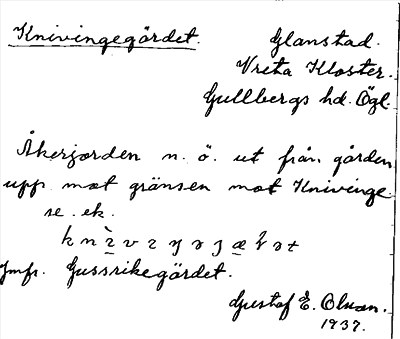 Knivingegärdet.
Glanstad.
Vreta Kloster.
Gullbergs hd. Ögl.
Åkerjorden n. ö. ut från gården
upp mot gränsen mot Knivinge.
se. ek.
Jmfr. Gussrikegärdet.
Gustaf E. Olsson.
1937.